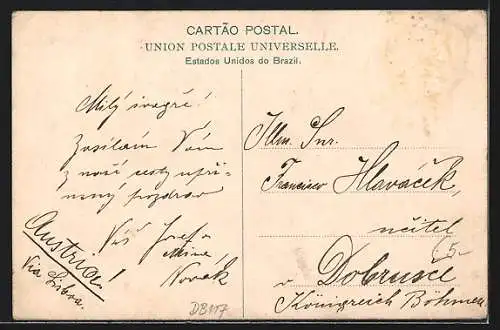 CARTÃO POSTAL.
UNION POSTALE UNIVERSELLE.
Estados Unidos do Brazil.
Milý švagře!
Zasílám Vám
z naší cesty upří-
mný pozdrav
Váš Josef a
Mína
Novák
Austria!
Via Lisboa.
Illm. Snr.
Francisco Hlaváček,
učitel
v Dobrusce
Königreich Böhmen
65-
DB117